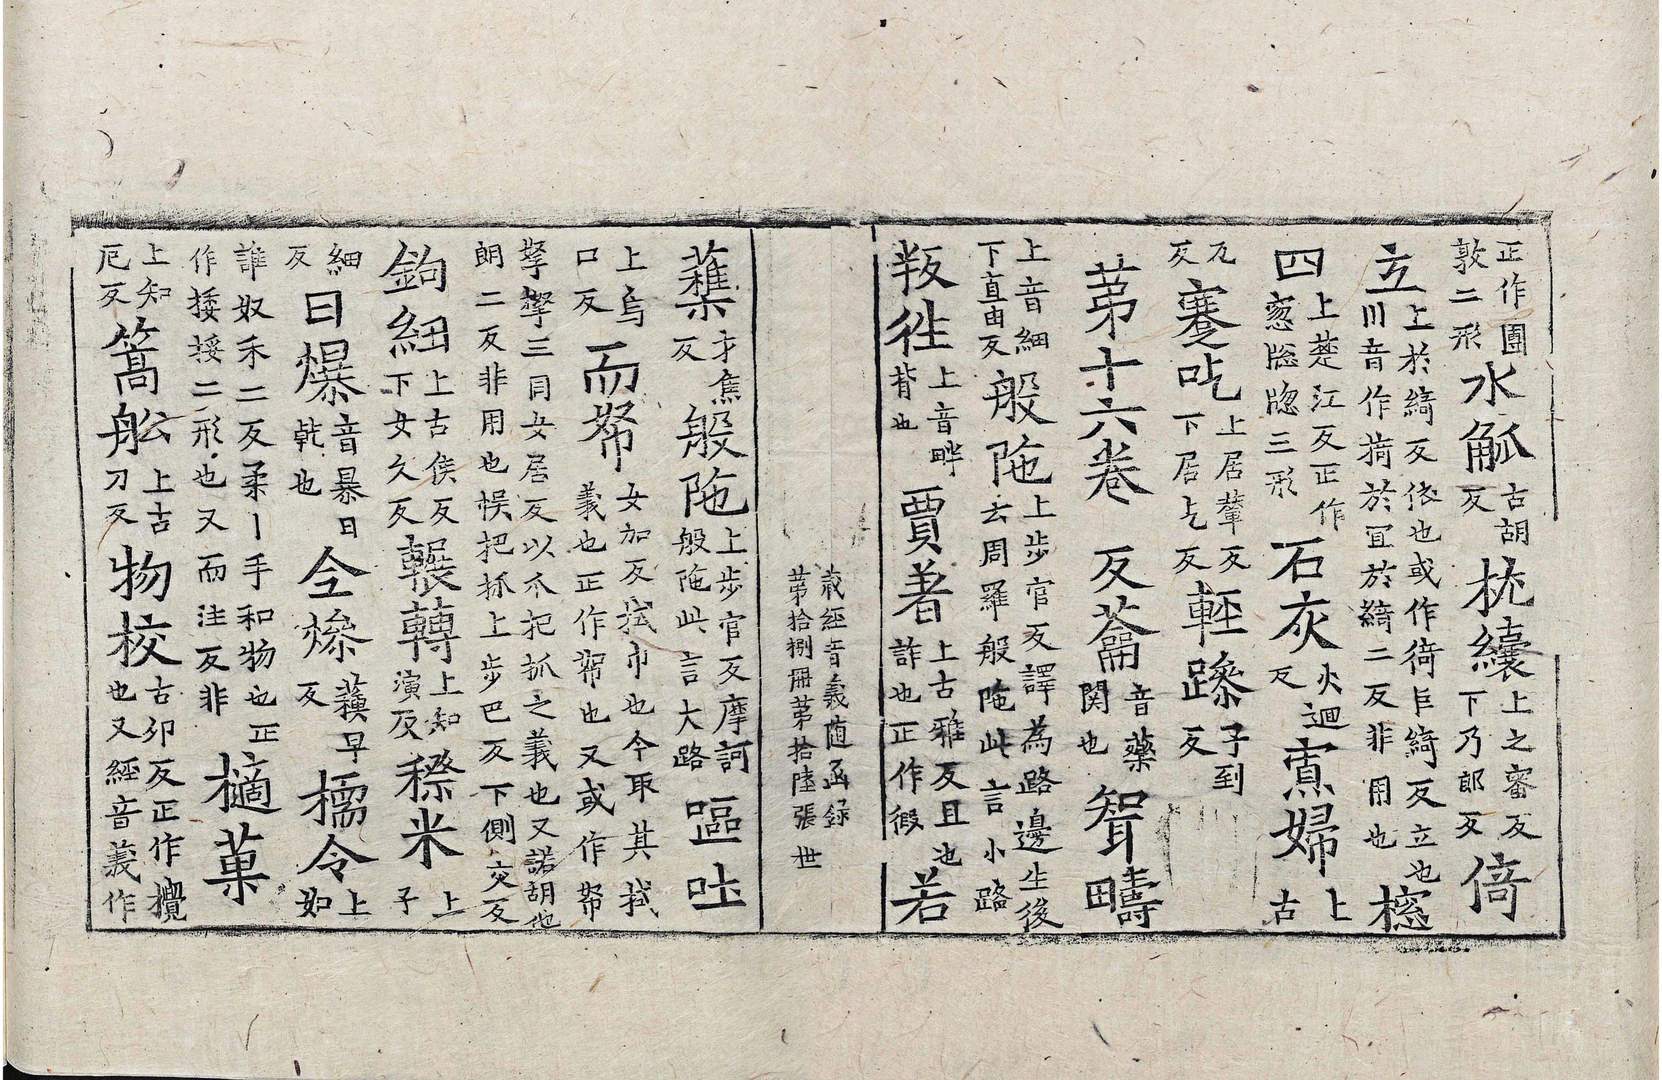 正作團敦二形水觚古胡反枕纕上之審反下乃郎反倚
立上於綺反依也或作徛巨綺反立也川音作掎於冝於綺二反非用也樬
四上楚江反正作窻牎牕三形石灰火迴反寡婦上古
瓦反蹇吃上居輦反下居乞反輕躁子到反
苐十六卷 反蘥音藥関也智疇
上音細下直由反般陁上步官反譯為路邊生後云周羅般陁此言小路
叛徃上音畔背也賈著上古雅反且也詐也正作假若
藏經音義随函録第拾捌冊苐拾陸張 世
才焦反般陁上步官反摩訶般陁此言大路嘔吐
上烏口反而帤女加反拭巾也今取其拭義也正作帤也又或作帑
拏挐三同女居反以爪把抓之義也又諾胡他朗二反非用也悮把抓上步巴反下側交反
鉤紐上古侯反下女久反輾轉上知演反穄米上子
細反日爆音暴日乹也令燥早反檽令上如
誰奴禾二反柔丨手和物也正作捼挼二形也又而注反非擿菓
上知厄反篙舩上古刀反物挍古卯反正作攪也又經音義作